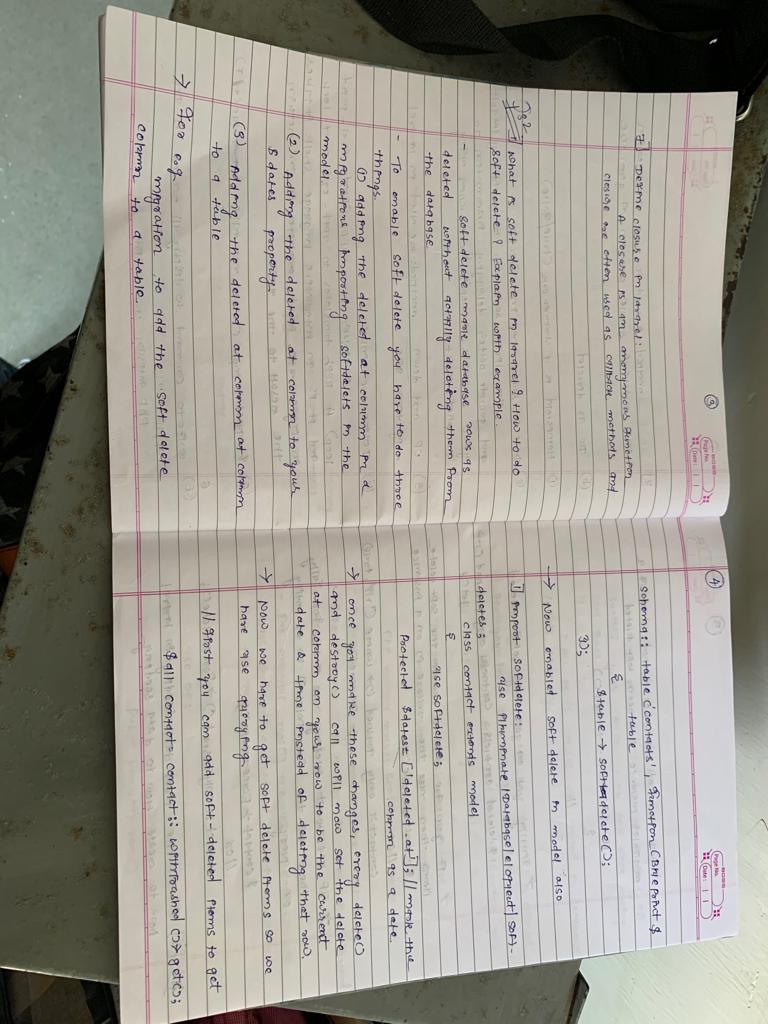 3
Page No.
Date:
7] Define closure in laravel:
A closure is an anonymous function
closure are often used as callback methods and
Q:2
1] What is soft delete in laravel? How to do
soft delete? Explain with example
- soft delete mark database rows as
deleted without actually deleting them from
the database
- To enable soft delete you have to do three
things.
(1) adding the deleted at column in a
migrations importing softdelets in the
model.
(2) Adding the deleted at column to your
$dates property
(3) Adding the deleted at column at column
to a table
→ For e.g.
migration to add the soft delete
column to a table.
4
Page No.
Date:
schema:: table ('contacts', function (Blueprint $
table
{
$table → softdelete();
});
→ Now enabled soft delete in model also
1] import softdelete:
use illuminate | Database | eloquent | soft-
deletes;
class contact extends model
{
use softdelete;
Protected $dates= ['deleted_at']; // mark this
column as a date
→ once you make these changes, every delete()
and destroy() call will now set the delete
at column on your row to be the current
date & time instead of deleting that row.
→ Now we have to get soft delete items so we
have use querying
// First you can add soft-deleted items to get
$all contact= contact:: withTrashed()→get();